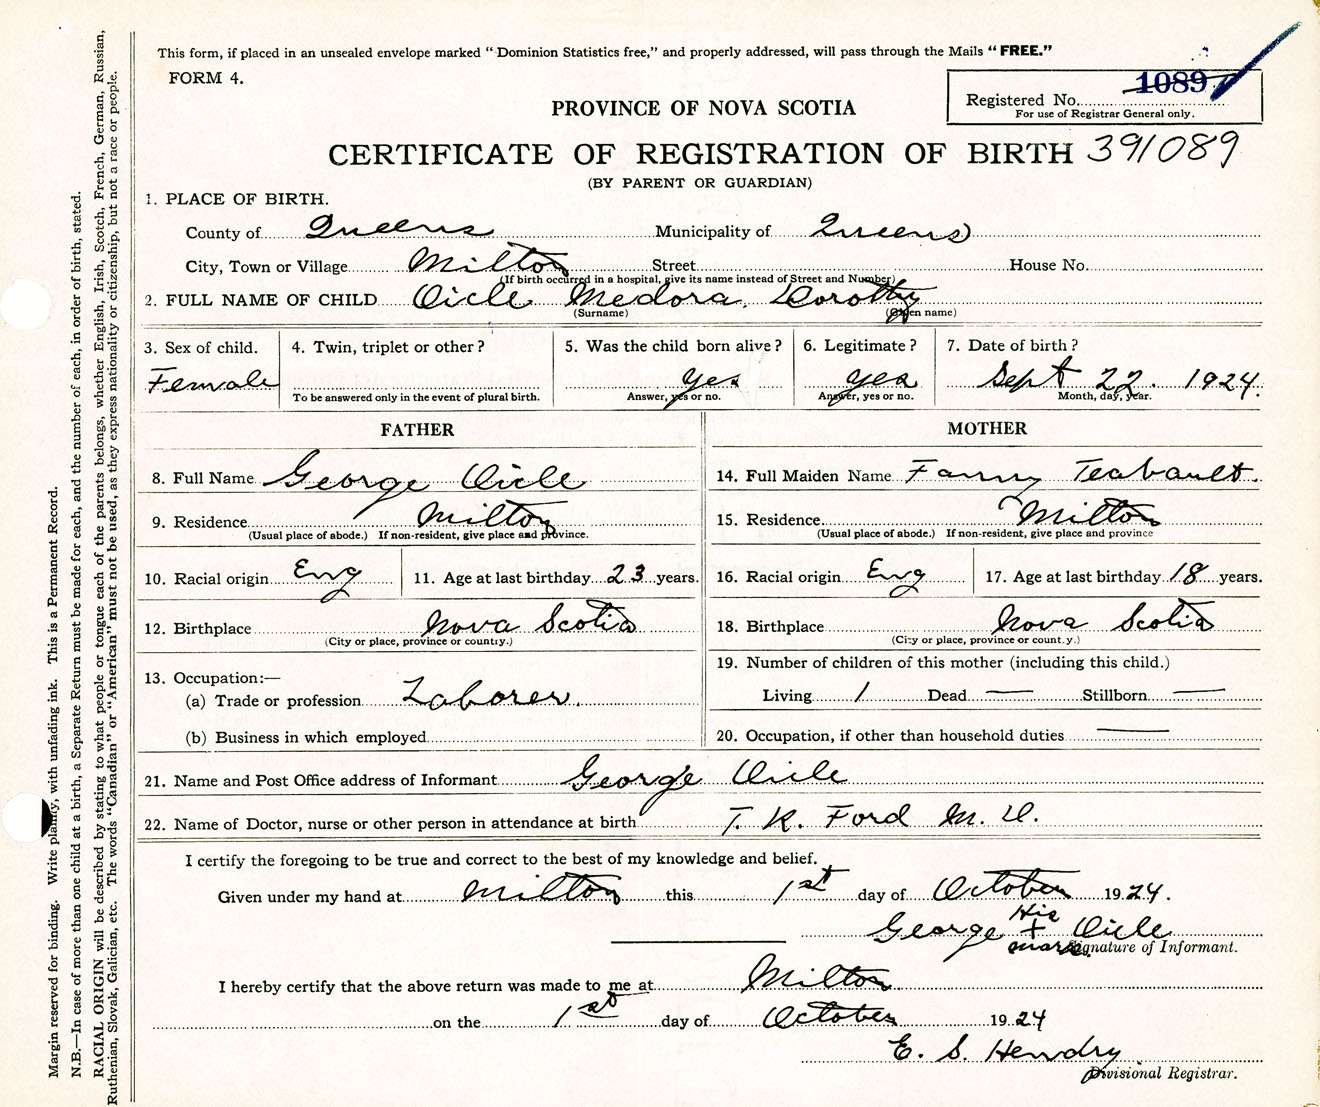 This form, if placed in an unsealed envelope marked “Dominion Statistics free,” and properly addressed, will pass through the Mails “FREE.”
FORM 4.
1089
Registered No.
For use of Registrar General only.
PROVINCE OF NOVA SCOTIA
CERTIFICATE OF REGISTRATION OF BIRTH 391089
(BY PARENT OR GUARDIAN)
1. PLACE OF BIRTH.
County of Queens Municipality of Queens
City, Town or Village Milton Street House No.
(If birth occurred in a hospital, give its name instead of Street and Number)
2. FULL NAME OF CHILD Oicle Medora, Dorothy
(Surname) (Given name)
3. Sex of child. 4. Twin, triplet or other? 5. Was the child born alive? 6. Legitimate? 7. Date of birth?
Female Yes Yes Sept 22. 1924.
To be answered only in the event of plural birth. Answer, yes or no. Answer, yes or no. Month, day, year.
FATHER MOTHER
8. Full Name George Oicle 14. Full Maiden Name Fanny Teabault
9. Residence Milton 15. Residence Milton
(Usual place of abode.) If non-resident, give place and province. (Usual place of abode.) If non-resident, give place and province
10. Racial origin Eng 11. Age at last birthday 23 years. 16. Racial origin Eng 17. Age at last birthday 18 years.
12. Birthplace Nova Scotia 18. Birthplace Nova Scotia
(City or place, province or country.) (City or place, province or country.)
13. Occupation:— 19. Number of children of this mother (including this child.)
(a) Trade or profession Laborer. Living 1 Dead — Stillborn —
(b) Business in which employed 20. Occupation, if other than household duties —
21. Name and Post Office address of Informant George Oicle
22. Name of Doctor, nurse or other person in attendance at birth T. K. Ford M. D.
I certify the foregoing to be true and correct to the best of my knowledge and belief.
Given under my hand at Milton this 1st day of October 1924.
His
George + Oicle
mark Signature of Informant.
I hereby certify that the above return was made to me at Milton
on the 1st day of October 1924
E. S. Hendry
Divisional Registrar.
Margin reserved for binding. Write plainly, with unfading ink. This is a Permanent Record.
N.B.—In case of more than one child at a birth, a Separate Return must be made for each, and the number of each, in order of birth, stated.
RACIAL ORIGIN will be described by stating to what people or tongue each of the parents belongs, whether English, Irish, Scotch, French, German, Russian,
Ruthenian, Slovak, Galician, etc. The words “Canadian” or “American” must not be used, as they express nationality or citizenship, but not a race or people.